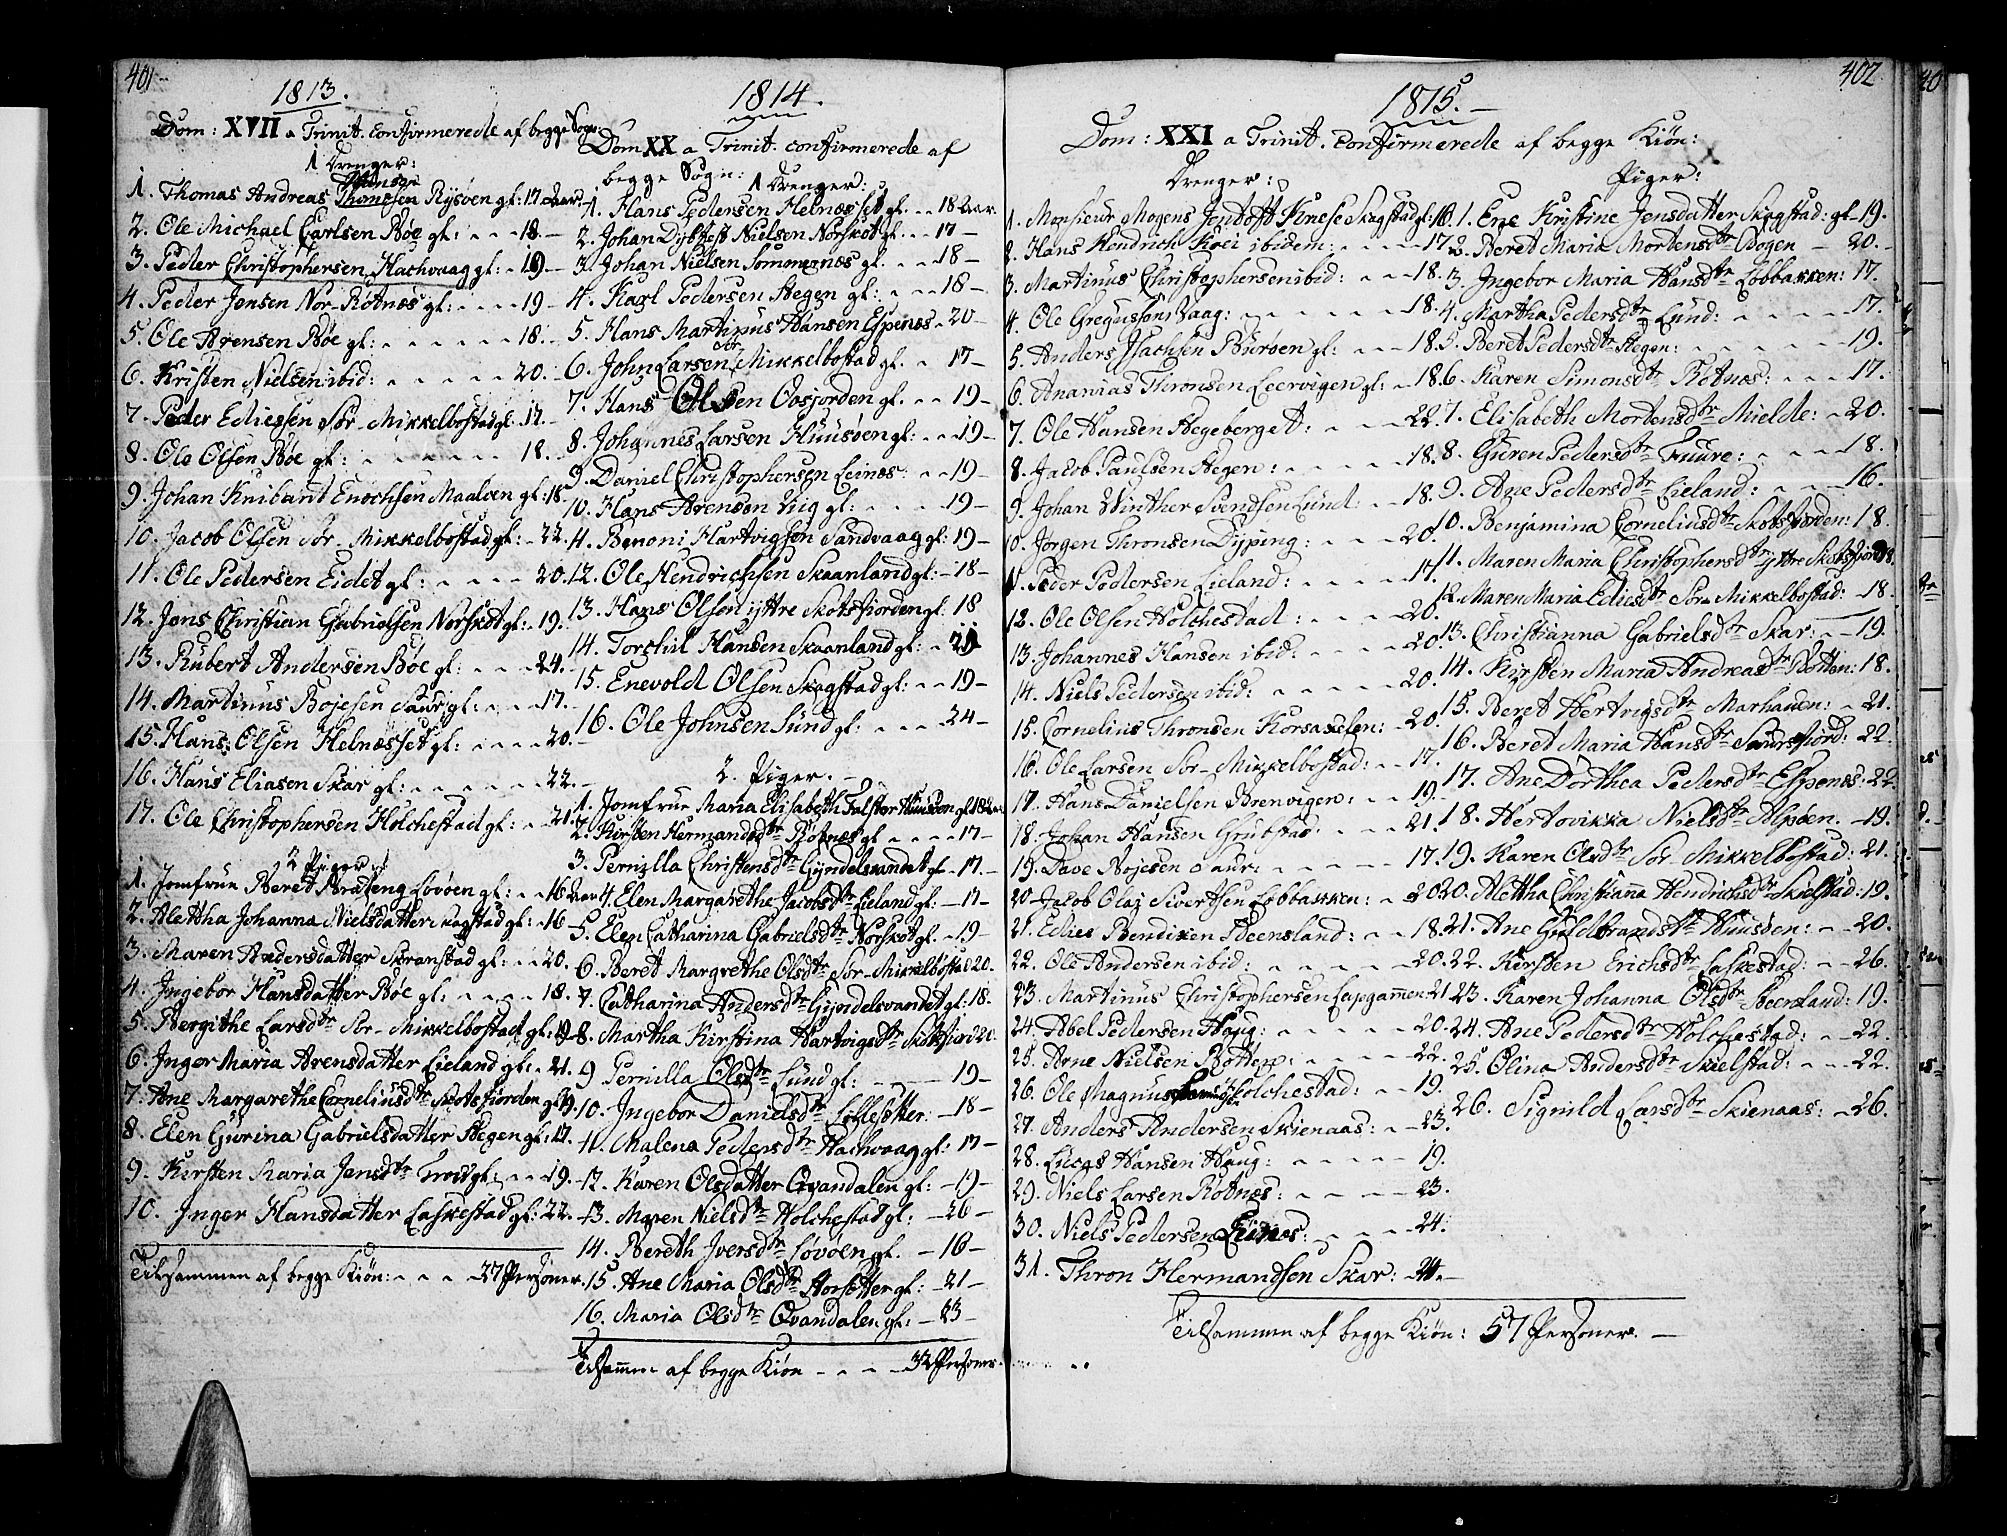 401
1813.
Dom: XVII a Trinit. confirmerede af begge Sogn:
1 Drenger:
1. Thomas Andreas Hansen Thomesen Rysøen gl: 17 Aar.
2. Ole Michael Carlsen Bøe gl: 18.
3. Peder Christophersen Hachvaag gl: 19
4. Peder Jensen Nor-Røtnæs gl: 19
5. Ole Arensen Bøe gl: 18.
6. Kristen Nielsen ibid: 20.
7. Peder Ediesen Sør-Mikkelbostad gl: 17.
8. Ole Olsen Bøe gl: 18.
9. Johan Knibant Enochsen Maaløen gl: 18.
10. Jacob Olsen Sør-Mikkelbostad gl: 22.
11. Ole Pedersen Eidet gl: 20.
12. Jens Christian Gabrielsen Norskot gl: 19.
13. Rubert Andersen Bøe gl: 24.
14. Martinus Bojesen Saur gl: 17.
15. Hans Olsen Helnæsset gl: 20.
16. Hans Eliasen Skar gl: 22.
17. Ole Christophersen Holchestad gl: 21.
2 Piger:
1. Jomfrue Beret Brateng Løvøen gl: 16 Aar
2. Alettha Johanna Nielsdatter Skagstad gl: 16
3. Maren Andersdatter Skranstad gl: 20.
4. Ingebor Hansdatter Bøe gl: 18.
5. Bergithe Larsdtr Sør-Mikkelbostad gl: 19
6. Inger Maria Arensdatter Lieland gl: 21.
7. Ane Margarethe Corneliusdtr Skotsfiorden gl: 19.
8. Elen Gurina Gabrielsdatter Stegen gl: 17.
9. Kirsten Maria Jensdtr gl: 19.
10. Inger Hansdatter Laskestad gl: 22.
Tilsammen af begge Kiøn: 27 Personer.
1814.
Dom XX a Trinit. confirmerede af
begge Sogn:
1 Drenger:
1. Hans Pedersen Helnæsset gl. 18 Aar.
2. Johan Dybfest Nielsen Norskot gl. 17
3. Johan Nielsen Sommernæs gl. 18
4. Karl Pedersen Stegen gl: 18
5. Hans Martinus Hansen Espenæs 20
6. John Larsen Sør-Mikkelbostad gl. 17
7. Hans Olsen Ovsjorden gl. 19
8. Johannes Larsen Huusøen gl: 19
9. Daniel Christophersen Leines 19
10. Hans Arensen Viig gl: 19
11. Benoni Hartvigsen Sandvaag gl: 19
12. Ole Hendrichsen Skaanland gl: 18
13. Hans Olsen yttre Skotsfiorden gl: 18
14. Torskil Hansen Skaanland gl: 21
15. Enevold Olsen Skagstad gl: 19
16. Ole Johnsen Lund gl: 24
2. Piger.
1. Jomfrue Maria Elisabeth Falster Huusøen gl. 18 Aar
2. Kirsten Hermandsdtr Røtnæs gl 17
3. Pernilla Christensdtr Gyndelsvandet gl 17.
4. Elen Margarethe Jacobsdtr Lieland gl: 17
5. Elen Catharina Gabrielsdtr Norskot gl. 19
6. Beret Margrethe Olsdtr Sør-Mikkelbostad 20.
7. Catharina Andersdtr Gyndelsvandet gl: 18.
8. Martha Kirstina Hartvigsdtr Skotsfior 20.
9 Pernilla Olsdtr Lund gl: 19
10. Ingebor Danielsdtr 18
11. Malena Pedersdtr Hachvaag gl: 17
12. Karen Olsdatter Qvandalen gl: 19
13. Maren Nielsdtr Holchestad gl: 26
14. Bereth Iversdtr Løvøen gl. 16
15. Ane Maria Olsdtr Horsetter gl: 21
16. Maria Olsdtr Qvandalen gl: 23
Tilsammen af begge Kiøn 32 Personer.
402
1815.
Dom: XXI a Trinit. confirmerede af begge Kiøn:
Drenger:
1. Monsieur Mogens Jentoft Kiese Skagstad gl: 16.
2. Hans Hendrich Koei ibidem: 17.
3. Martinus Christophersen ibid: 18.
4. Ole Gregussøns Vaag: 18.
5. Anders Isachsen Burøen gl: 18.
6. Ananias Thronsen Leervigen gl: 18.
7. Ole Hansen Hegeberget: 22.
8. Jacob Paulsen Stegen: 18.
9. Johan Winther Svendsen Lund: 18.
10. Jørgen Thronsen Dyping: 20.
11. Peder Pedersen Lieland: 17.
12. Ole Olsen Holchestad: 20.
13. Johannes Hansen ibid: 20.
14. Niels Pedersen ibid: 20.
15. Cornelius Thronsen Korsaxelen: 20.
16. Ole Larsen Sør-Mikkelbostad: 17.
17. Hans Danielsen Brenvigen: 19.
18. Johan Hansen Grubstad 21.
19. Dave Bojesen Saur: 17.
20. Jacob Olaj Sivertsen Løbbakken: 20
21. Edies Bendixen Steensland: 18.
22. Ole Andersen ibid: 20.
23. Martinus Christophersen Lapgammen 21
24. Abel Pedersen Haug: 20.
25. Arne Nielsen Botten: 22.
26. Ole Magnus Holchestad: 19.
27. Anders Andersen Skienaas: 23.
28. Lucas Hansen Haug: 19.
29. Niels Larsen Røtnæs: 23.
30. Niels Pedersen Leines: 24.
31. Thron Hermandsen Skar: 24.
Piger:
1. Ene Kristine Jensdatter Skagstad: gl 19.
2. Beret Maria Mortensdtr Bogen 20.
3. Ingebor Maria Hansdtr Løbbakken: 17.
4. Martha Pedersdtr Lund: 17.
5. Beret Pedersdtr Stegen: 19.
6. Karen Simonsdtr Røtnæs: 17.
7. Elisabeth Mortensdtr Mielde: 20.
8. Guren Pedersdtr Fuure: 18.
9. Ane Pedersdtr Lieland: 16.
10. Benjamina Corneliusdtr Skotsfiorden: 18.
11. Maren Maria Christophersdtr yttre Skotsfiord 18.
12. Maren Maria Ediesdtr Sør-Mikkelbostad: 18.
13. Christianna Gabrielsdtr Skar: 19.
14. Kirsten Maria Andreasdtr Botten: 18.
15. Beret Hertvigsdtr Marhauen: 21.
16. Beret Maria Hansdtr Saursfiord: 22.
17. Ane Dorthea Pedersdtr Espenæs: 22.
18. Hertovikka Nielsdtr Alpøen. 19.
19. Karen Olsdtr Sør-Mikkelbostad: 21.
20. Alettha Christianna Hendrichsdtr Skielstad: 19.
21. Ane Guldbrandsdtr Huusøen: 20.
22. Kirsten Erichsdtr Laskestad: 26.
23. Karen Johanna Olsdtr Steensland: 19.
24. Ane Pedersdtr Holchestad: 22.
25. Olina Andersdtr Skielstad: 22.
26. Signild Larsdtr Skienaas: 26.
Tilsammen af begge Kiøn: 57 Personer.